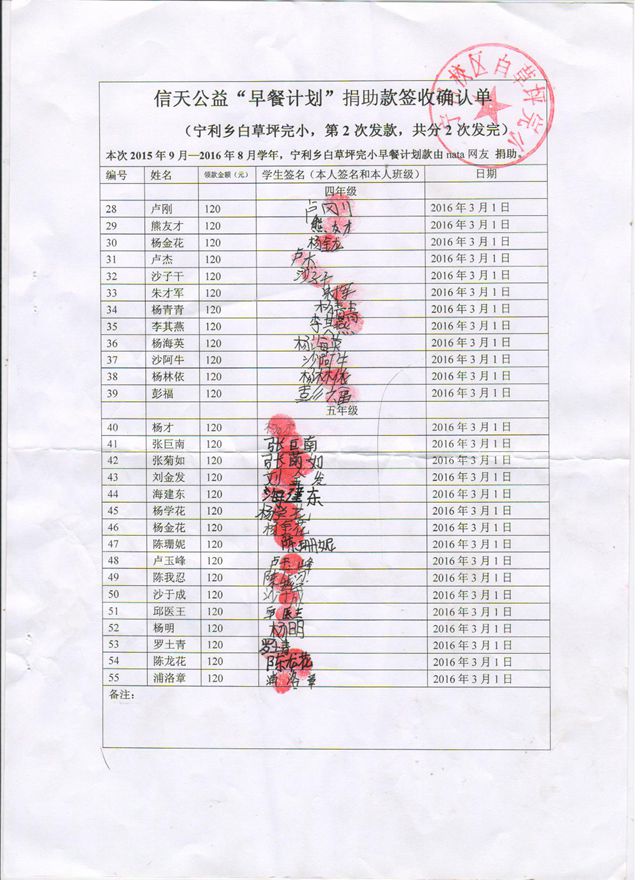 信天公益“早餐计划”捐助款签收确认单
（宁利乡白草坪完小，第 2 次发款，共分 2 次发完）
本次 2015 年 9 月—2016 年 8 月学年，宁利乡白草坪完小早餐计划款由 nata 网友 捐助。
编号 姓名 领款金额（元） 学生签名（本人签名和本人班级） 日期
四年级
28 卢刚 120 卢冈川 2016 年 3 月 1 日
29 熊友才 120 熊友才 2016 年 3 月 1 日
30 杨金花 120 2016 年 3 月 1 日
31 卢杰 120 2016 年 3 月 1 日
32 沙子干 120 沙子干 2016 年 3 月 1 日
33 朱才军 120 2016 年 3 月 1 日
34 杨青青 120 2016 年 3 月 1 日
35 李其燕 120 李其燕 2016 年 3 月 1 日
36 杨海英 120 杨海英 2016 年 3 月 1 日
37 沙阿牛 120 沙阿牛 2016 年 3 月 1 日
38 杨林依 120 杨林依 2016 年 3 月 1 日
39 彭福 120 2016 年 3 月 1 日
五年级
40 杨才 120 2016 年 3 月 1 日
41 张巨南 120 张巨南 2016 年 3 月 1 日
42 张菊如 120 张菊如 2016 年 3 月 1 日
43 刘金发 120 刘金发 2016 年 3 月 1 日
44 海建东 120 海建东 2016 年 3 月 1 日
45 杨学花 120 杨学花 2016 年 3 月 1 日
46 杨金花 120 杨金花 2016 年 3 月 1 日
47 陈珊妮 120 陈珊妮 2016 年 3 月 1 日
48 卢玉峰 120 卢玉峰 2016 年 3 月 1 日
49 陈我忍 120 2016 年 3 月 1 日
50 沙于成 120 2016 年 3 月 1 日
51 邱医王 120 2016 年 3 月 1 日
52 杨明 120 杨明 2016 年 3 月 1 日
53 罗土青 120 罗土青 2016 年 3 月 1 日
54 陈龙花 120 陈龙花 2016 年 3 月 1 日
55 浦洛章 120 浦洛章 2016 年 3 月 1 日
备注：